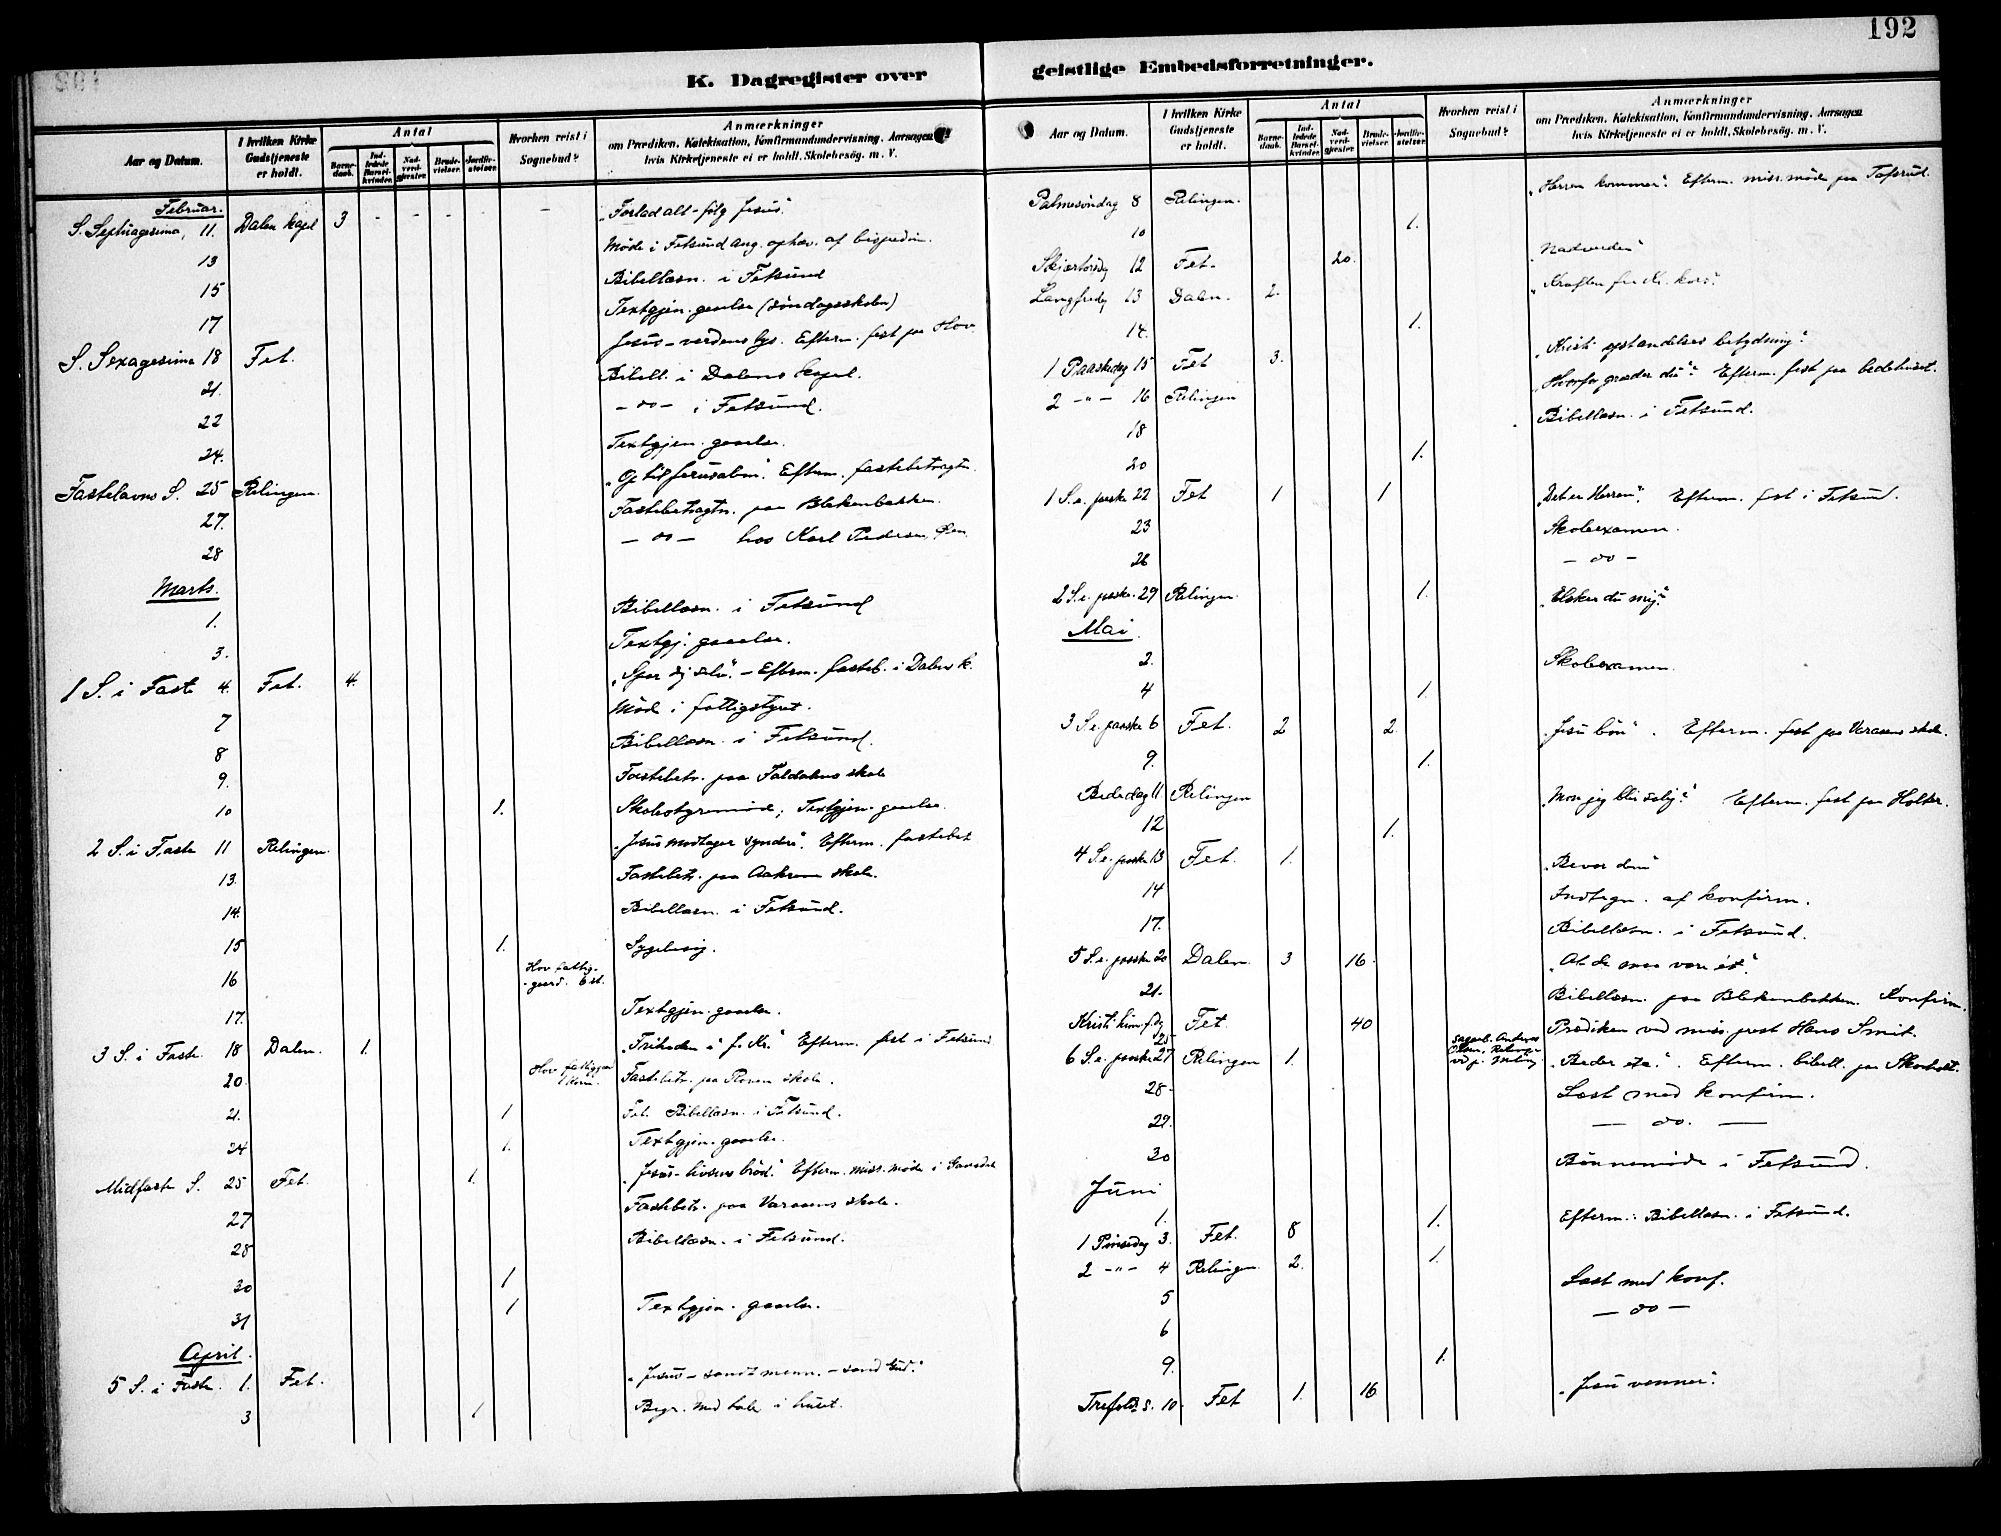 192
K. Dagregister over
Aar og Datum.
I hvilken Kirke Gudstjeneste er holdt.
Antal
Barne-daab.
Ind-ledede Barsel-kvinder.
Nad-verd-gjæster.
Brude-vielser.
Jordfæ-stelser.
Hvorhen reist i Sognebud?
Anmærkninger
om Prædiken, Katekisation, Konfirmandundervisning, Aarsagen
hvis Kirketjeneste ei er holdt, Skolebesøg. m. V.
Februar.
S. Septuagesima, 11. Dalen kapel 3 - - - - - „Forlad alt - følg Jesus".
13 Møde i Fetsund ang. ophæv. af
15 Bibellæsn. i Fetsund
17 Textgjen. gaaelse (søndagsskolen)
S. Sexagesima 18 Fet. Jesus - verdens lys. Efterm. fest paa Hov
21. Bibell. i Dalens kapel.
22 - do - i Fetsund.
24. Textgjen. gaaelse.
Fastelavns S. 25 Relingen. „Op til Jerusalem". Efterm. fastebetragtn.
27. Fastebetragtn. paa Blekenbakken.
28 - do - hos Karl Pedersen
Marts.
1. Bibellæsn. i Fetsund
3. Textgj. gaaelse.
1 S. i Faste 4. Fet. 4. - Efterm. fasteb. i Dalens k.
7 Møde i fattigstyret.
8 Bibellæsn. i Fetsund.
9. Fastebetr. paa Faldalens skole
10 1. Skolestyremøde; Textgjen. gaaelse.
2 S. i Faste 11 Relingen. „Jesus modtager syndere". Efterm. fastebet
13. Fastebetr. paa skole.
14. Bibellæsn. i Fetsund.
15 1. Sygebesøg.
16 Hov fattig-
gaard.
17. Textgjen. gaaelse.
3 S. i Faste. 18 Dalen. 1. „Friheden i J. Kr." Efterm. fest i Fetsund
20. Hov fattiggaard Fastebetr. paa skole.
21. 1 Bibellæsn. i Fetsund.
24 1. Textgjen. gaaelse.
Midfaste S. 25 Fet. 1. „Jesus - livsens brød." Efterm. miss. møde i
27 Fastebetr. paa Varaaens skole.
28 Bibellæsn. i Fetsund.
30 1
31 1 Textgjen. gaaelse.
April.
5 S. i Faste. 1. Fet. „Jesus - sandt menn. - sand Gud."
3 1 Begr. med tale i huset.
geistlige Embedsforretninger.
Aar og Datum.
I hvilken Kirke Gudstjeneste er holdt.
Antal
Barne-daab.
Ind-ledede Barsel-kvinder.
Nad-verd-gjæster.
Brude-vielser.
Jordfæ-stelser.
Hvorhen reist i Sognebud?
Anmærkninger
om Prædiken, Katekisation, Konfirmandundervisning, Aarsagen
hvis Kirketjeneste ei er holdt, Skolebesøg. m. V.
Palmesøndag 8 Relingen. „Herren kommer". Efterm. miss. møde paa
10 1.
Skjærtorsdg 12 Fet. 20. „Nadverden"
Langfredg 13 Dalen. 2. „Kraften fra Kr. kors".
14. 1.
1 Paaskedag 15 Fet 3. „Kristi opstandelses betydning".
2 -"- 16 Relingen „Hvorfor græder du". Efterm. fest paa bedehuset.
18 Bibellæsn. i Fetsund.
20 1.
1 S. e. paaske 22 Fet 1 1 „Det er Herren". Efterm. fest i Fetsund.
23 Skoleexamen.
26 - do -
2 S. e. paaske. 29 Relingen. 1. „Elsker du mig".
Mai.
2. Skoleexamen.
4 1.
3 S. e. paaske 6 Fet. 2 2. „Jesu bøn". Efterm. fest paa Varaaens skole.
9. 1.
Bededag 11 Relingen „Mon jeg blir salig". Efterm. fest paa Holter.
12 1.
4 S. e. paaske 13 Fet. 1. „Bevar dem"
14 Indtegn. af konfirm.
17. Bibellæsn. i Fetsund.
5 S. e. paaske 20 Dalen 3 16. „At de maa være ét".
21. Bibellæsn. paa Blekenbakken. Konfirm.
Kristi him. f. dg 25 Fet 40 Prædiken ved miss. præst Hans Smit.
6 S. e. paaske 27 Relingen 1. „Beder etc." Efterm. bibell. paa
28. Læst med konfirm.
29. - do. -
30 Bønnemøde i Fetsund.
Juni
1. 1.
1 Pinsedag 3. Fet. 8 Efterm.: Bibellæsn. i Fetsund.
2 -"- 4 Relingen. 2. 1.
5 Læst med konf.
6 - do -
9. 1.
Trefold. s. 10. Fet 1. 16 „Jesu venner".